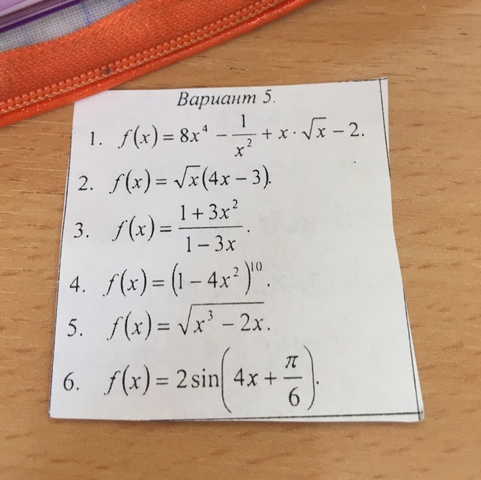 Вариант 5.
1. f(x) = 8x⁴ − 1/x² + x · √x − 2.
2. f(x) = √x(4x − 3).
3. f(x) = (1 + 3x²)/(1 − 3x).
4. f(x) = (1 − 4x²)¹⁰.
5. f(x) = √(x³ − 2x).
6. f(x) = 2 sin(4x + π/6).